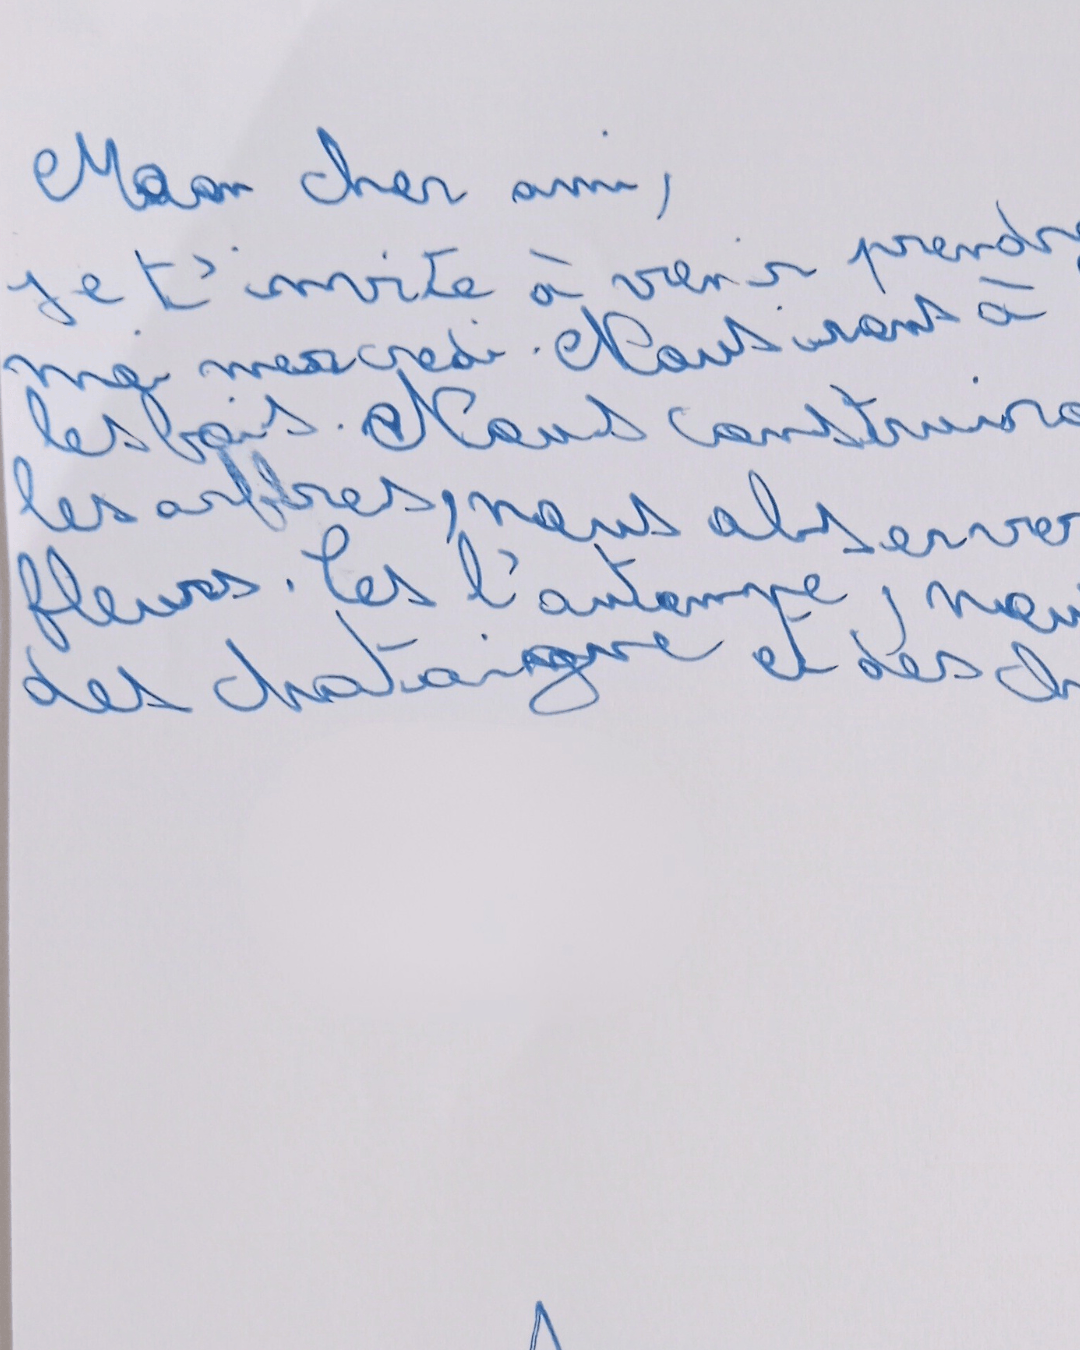 Mon cher ami,
je t'invite à venir prendre
moi mercredi. Nous irons à
les bois. Nous construiro
les arbres, nous observer
fleurs. Ces l'autompe, nou
des chataingne et des ch